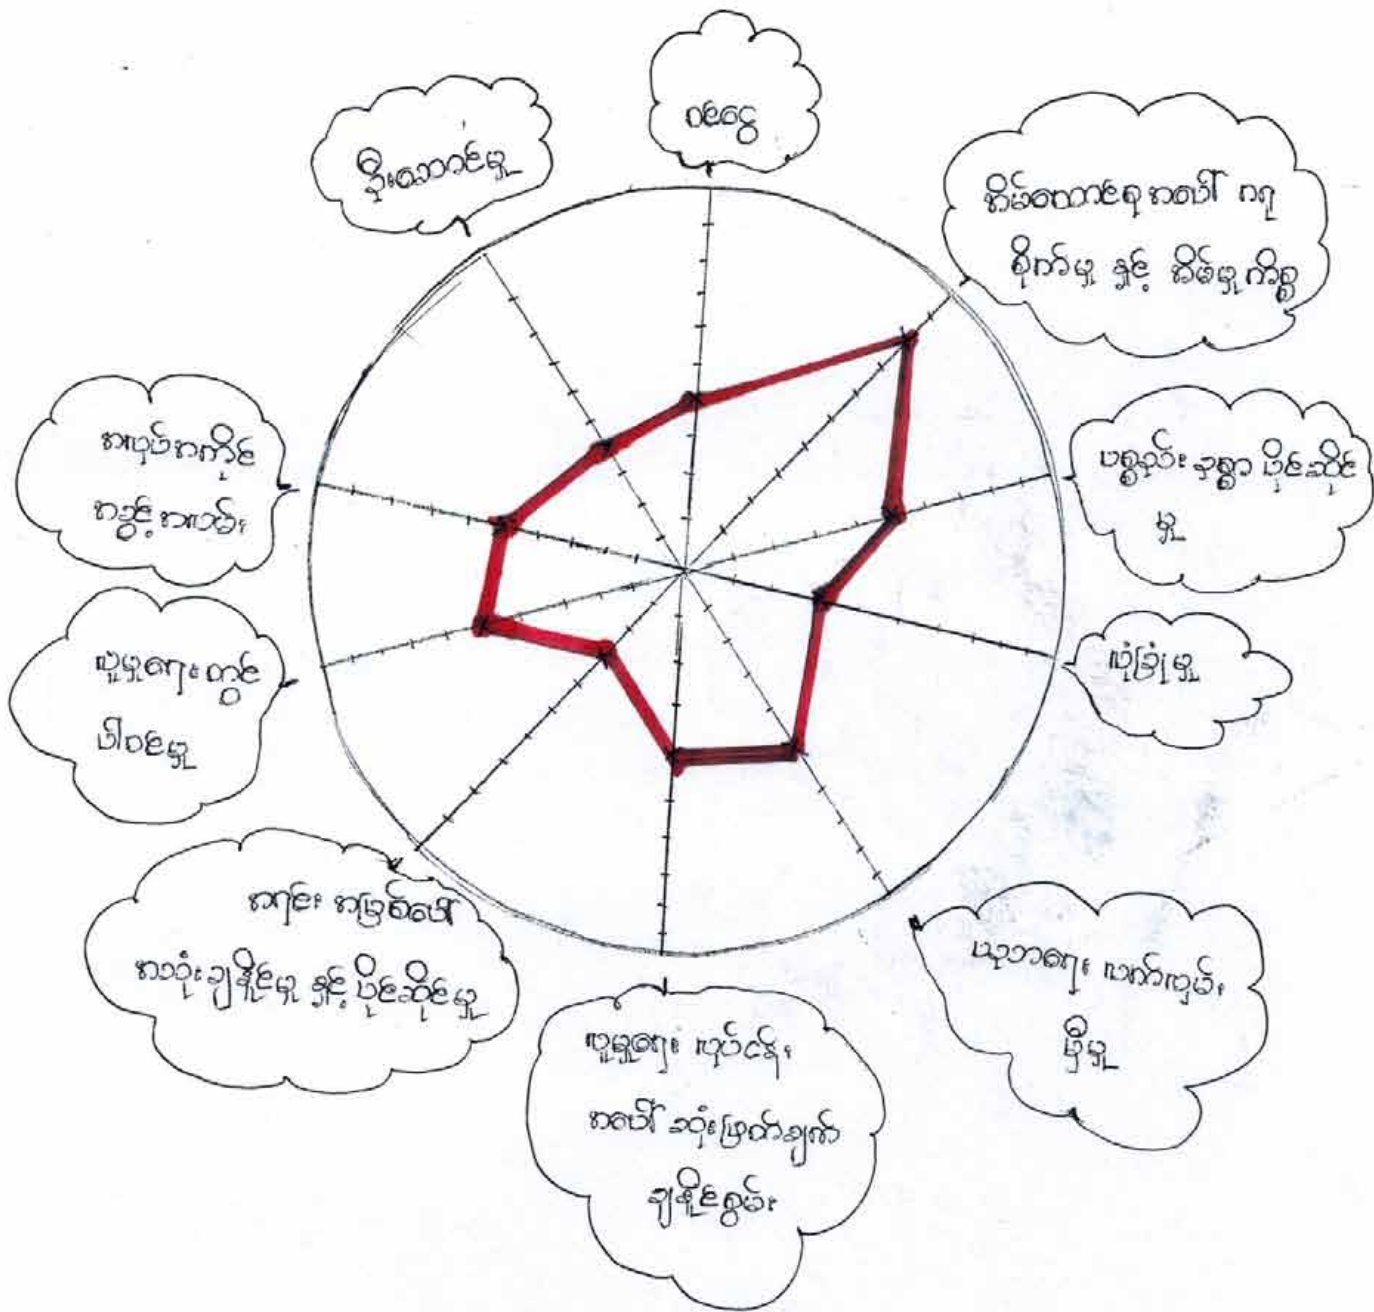 ဝင်ငွေ
အိမ်ထောင်စုအပေါ် ဂရု
စိုက်မှု နှင့် အိမ်မှုကိစ္စ
ပစ္စည်း ဥစ္စာ ပိုင်ဆိုင်
မှု
လုံခြုံမှု
ပညာရေး လက်လှမ်း
မှီမှု
လူမှုရေး လုပ်ငန်း
အပေါ် ဆုံးဖြတ်ချက်
ချနိုင်စွမ်း
အရင်း အမြစ်ပေါ်
အသုံးချနိုင်မှု နှင့် ပိုင်ဆိုင်မှု
လူမှုရေးတွင်
ပါဝင်မှု
အလုပ်အကိုင်
အခွင့်အလမ်း
ဦးဆောင်မှု